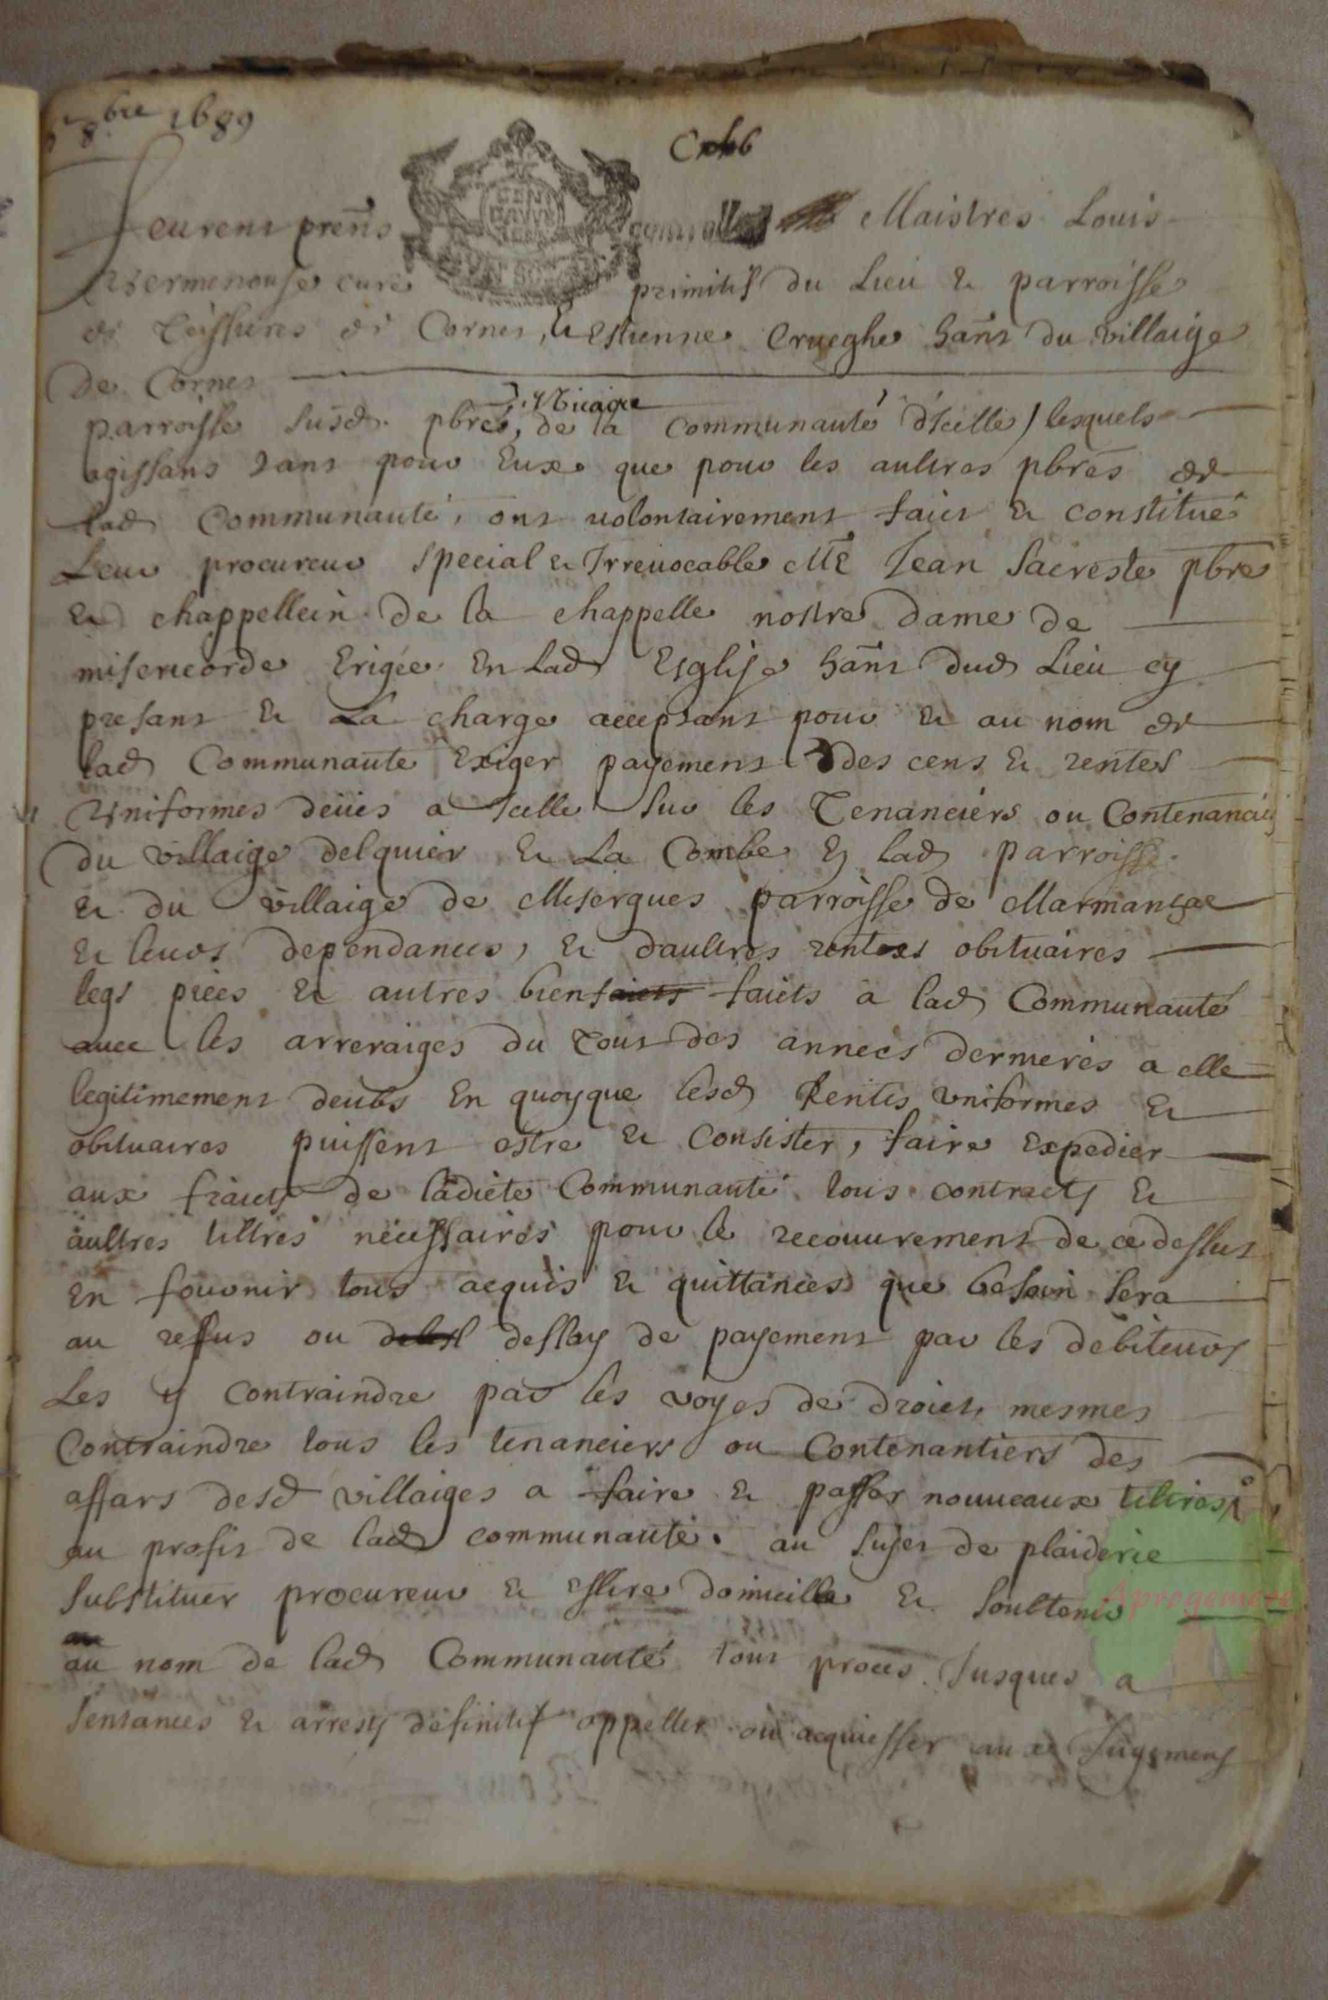 8bre 1689
feurent prens Maistres Louis
Vermenouse curé primitif du Lieu & parroisse
de Teissieres de Cornet, & Estienne Crueghe hant du villaige
De Cornet
& Vicaire
parroisse susd. pbres, de la Communauté d'Icelle / lesquels
agissans tant pour Eux que pour les aultres pbres de
lad Communauté, ont volontairement faict & constitué
Leur procureur special & Irrevocable Me Jean Lacreste pbre
& chappellein de la chappelle nostre dame de
misericorde Erigée En Lad Esglise hant dud Lieu cy
presant & La charge acceptant pour & au nom de
lad Communaute Exiger payement des cens & rentes
Uniformes deües a Icelle sur les Tenanciers ou Contenanciers
du villaige delquier & La Combe En lad parroisse
& du villaige de Misergues parroisse de Marmanhac
& leurs dependances, & daultres rentes obituaires
legs piees & autres bienfaicts faicts a lad Communauté
avec les arreraiges du tout des années dernieres a elle
legitimement deübs En quoy que lesd Rentes uniformes &
obituaires puissent estre & Consister, faire Expedier
aux fraicts de ladicte Communauté tous contracts &
aultres tiltres necessaires pour le recouvrement de ce dessus
En fournir tous acquis & quittances que besoin sera
au reffus ou dellay de payement par les debiteurs
Les y contraindre par les voyes de droict, mesmes
Contraindre tous les tenanciers ou Contenantiers des
affars desd villaiges a faire & passer nouveaux tiltres
au profit de lad communauté. au sujet de plaiderie
substituer procureur & eslire domicille & soultenir
au nom de lad Communauté tout proces Jusques a
sentances & arrests definitif appeller ou acquiesser aux Jugemens
Aprogemere